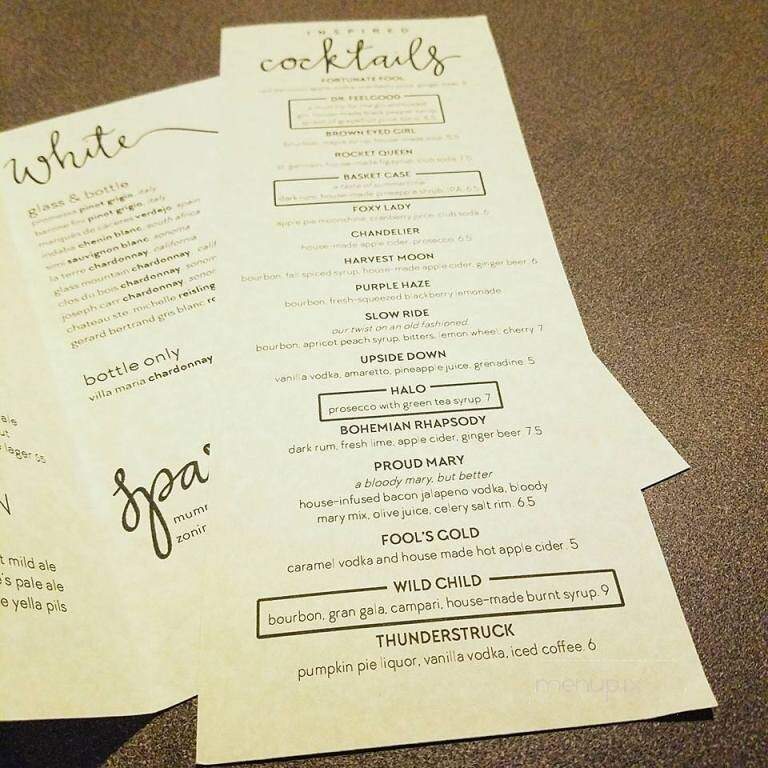 INSPIRED
cocktails
FORTUNATE FOOL
DR. FEELGOOD
BROWN EYED GIRL
ROCKET QUEEN
BASKET CASE
a taste of summertime
dark rum, house-made pineapple shrub, IPA. 6.5
FOXY LADY
apple pie moonshine, cranberry juice, club soda. 6
CHANDELIER
house-made apple cider, prosecco. 6.5
HARVEST MOON
bourbon, fall spiced syrup, house-made apple cider, ginger beer. 6
PURPLE HAZE
bourbon, fresh-squeezed blackberry lemonade
SLOW RIDE
our twist on an old fashioned.
bourbon, apricot peach syrup, bitters, lemon wheel, cherry. 7
UPSIDE DOWN
vanilla vodka, amaretto, pineapple juice, grenadine. 5
HALO
prosecco with green tea syrup. 7
BOHEMIAN RHAPSODY
dark rum, fresh lime, apple cider, ginger beer. 7.5
PROUD MARY
a bloody mary, but better
house-infused bacon jalapeno vodka, bloody
mary mix, olive juice, celery salt rim. 6.5
FOOL'S GOLD
caramel vodka and house made hot apple cider. 5
WILD CHILD
bourbon, gran gala, campari, house-made burnt syrup. 9
THUNDERSTRUCK
pumpkin pie liquor, vanilla vodka, iced coffee. 6
White
glass & bottle
pinot grigio, italy
pinot grigio, italy
marqués de cáceres verdejo, spain
indaba chenin blanc, south africa
sauvignon blanc, sonoma
la terre chardonnay, california
glass mountain chardonnay, calif
clos du bois chardonnay, sonom
joseph carr chardonnay, sonom
chateau ste. michelle riesling
gerard bertrand gris blanc ro
bottle only
villa maria chardonnay
spa
mumm
zonin
ale
ut
lager
N
t mild ale
's pale ale
e yella pils
menupix